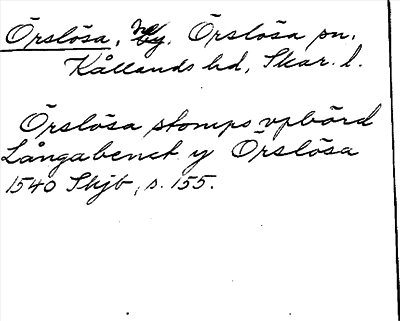 Örslösa, by. Örslösa sn,
Kållands hd, Skar. l.
Örslösa stomps vpbörd
Långabenct y Örslösa
1540 Skjb, s. 155.